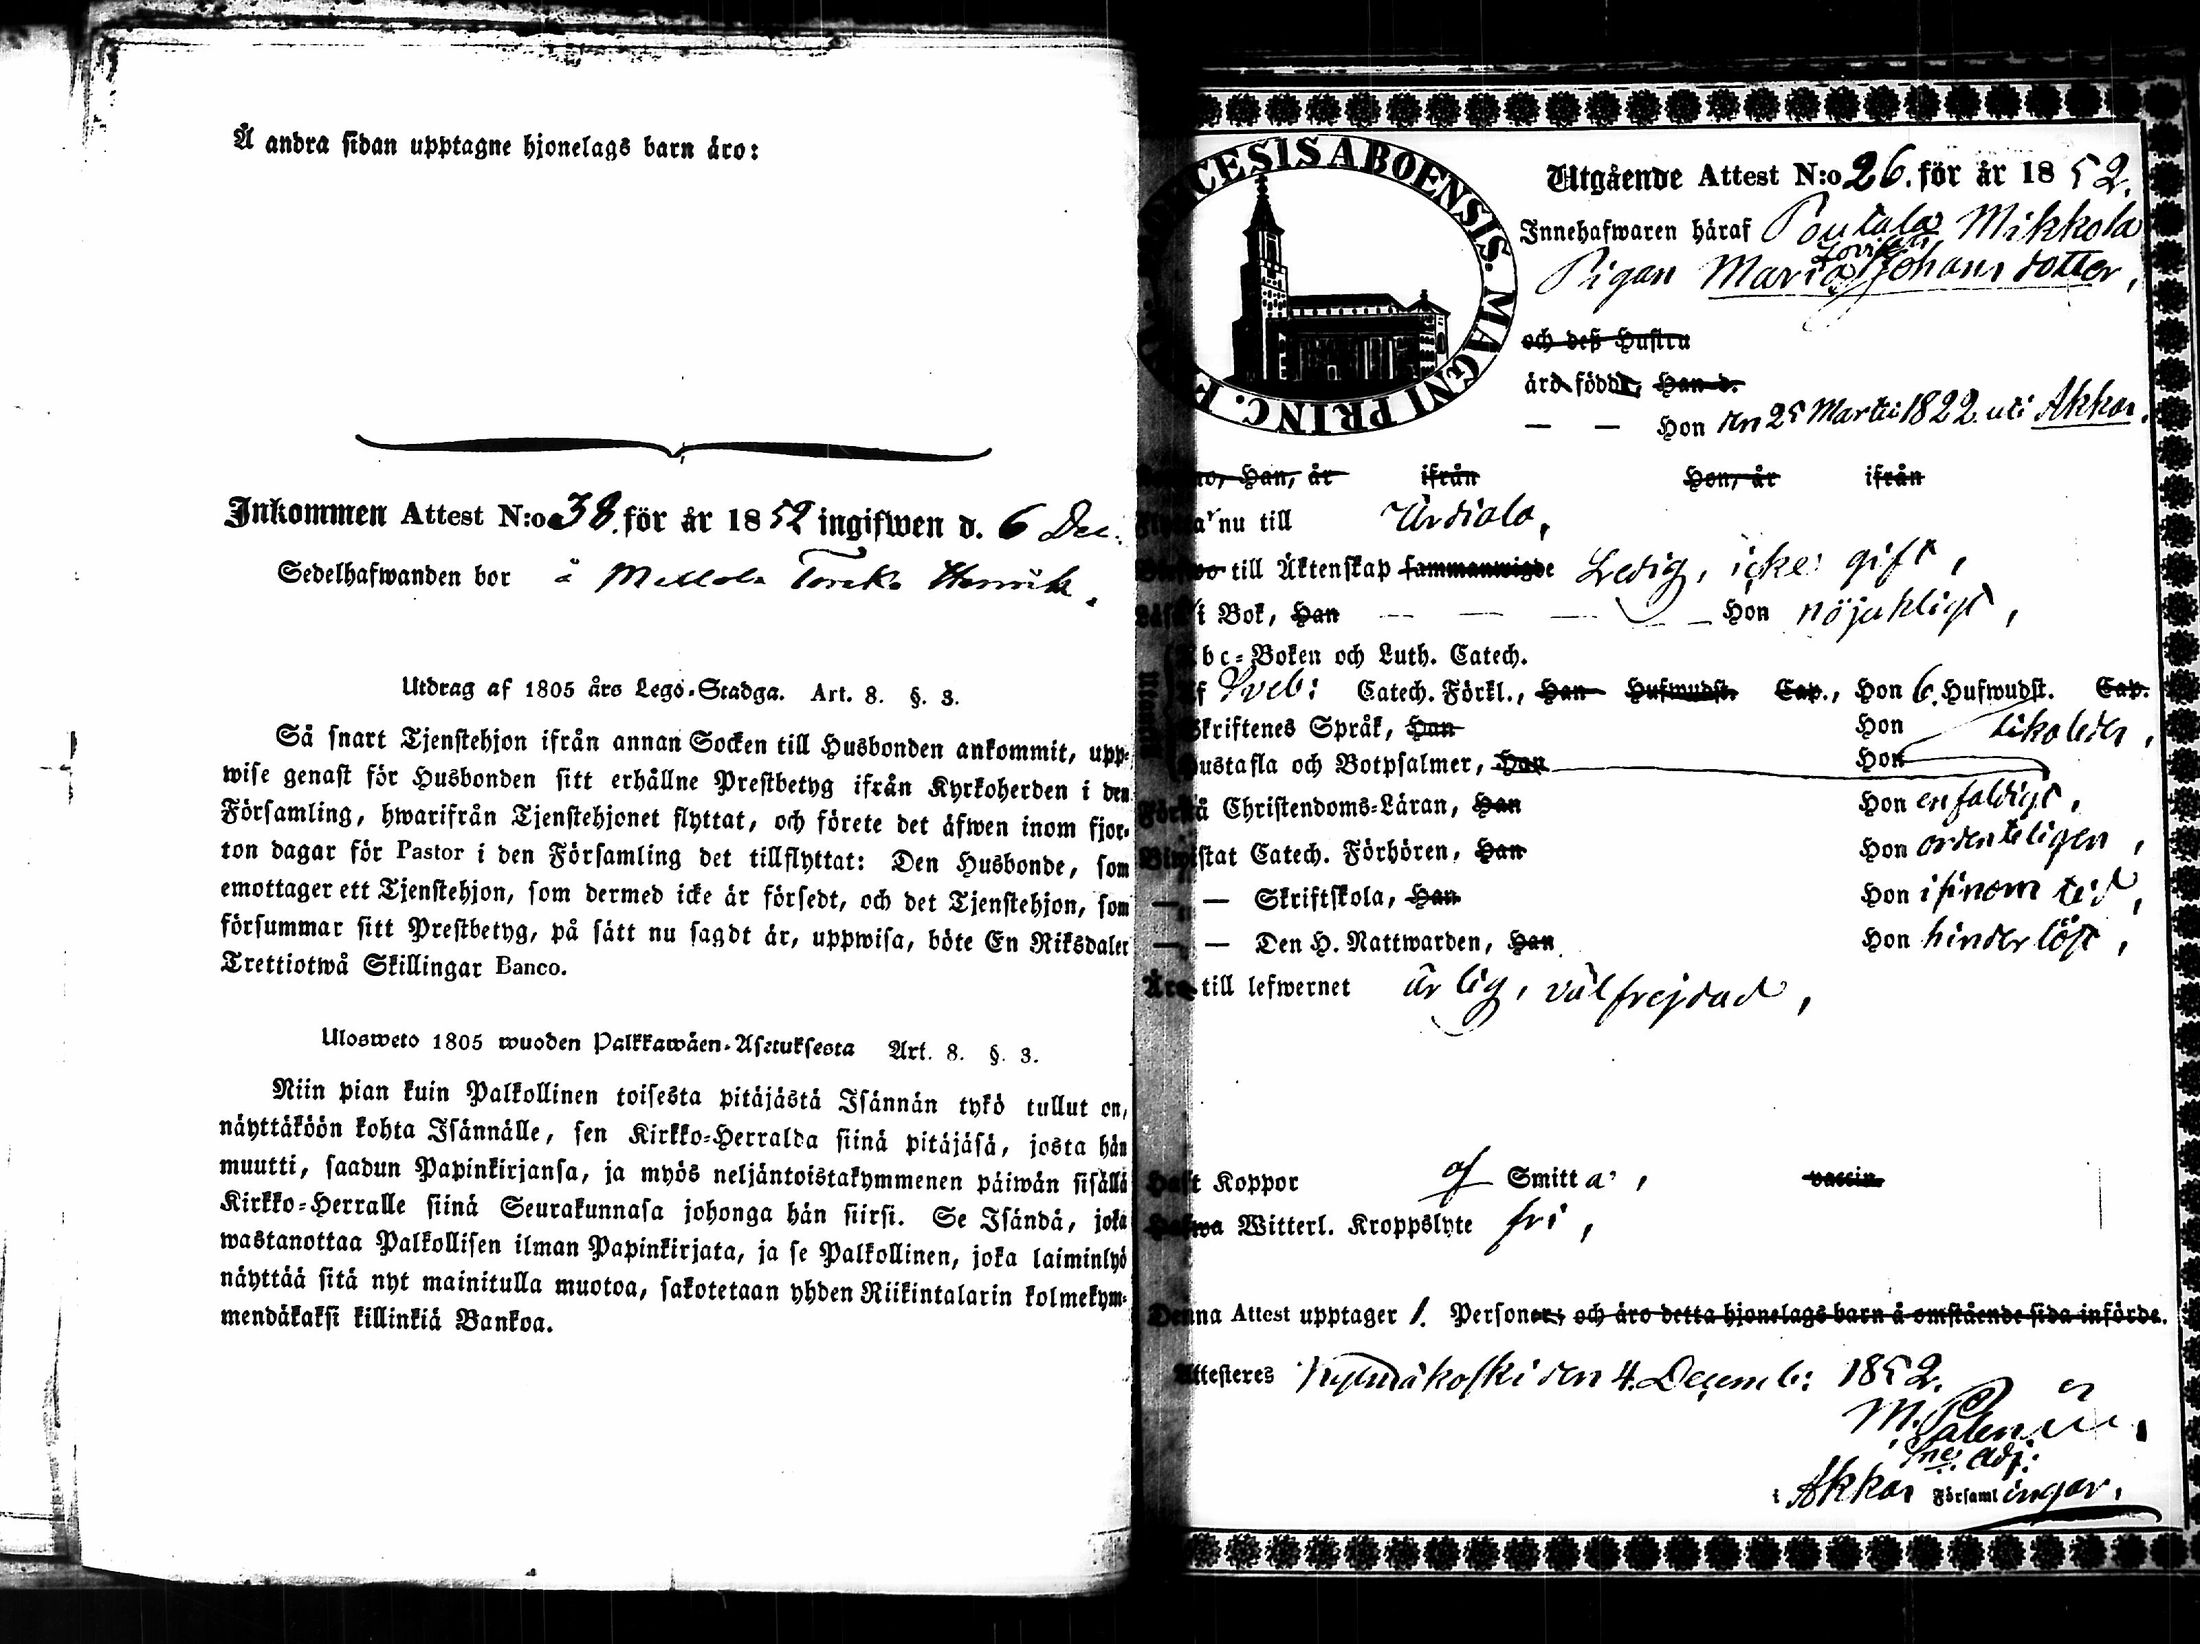 Å andra sidan upptagne hjonelags barn äro:
Inkommen Attest N:o 38. för år 1852 ingifwen d. 6 Dec.
Sedelhafwanden bor å Henrik.
Utdrag af 1805 års Lego-Stadga. Art. 8. §. 3.
Så snart Tjenstehjon ifrån annan Socken till Husbonden ankommit, upp-
wise genast för Husbonden sitt erhållne Prestbetyg ifrån Kyrkoherden i den
Församling, hwarifrån Tjenstehjonet flyttat, och förete det äfwen inom fjor-
ton dagar för Pastor i den Församling det tillflyttat: Den Husbonde, som
emottager ett Tjenstehjon, som dermed icke är försedt, och det Tjenstehjon, som
försummar sitt Prestbetyg, på sätt nu sagdt är, uppwisa, böte En Riksdaler
Trettiotwå Skillingar Banco.
Ulosweto 1805 wuoden Palkkawäen-Asetuksesta Art. 8. §. 3.
Niin pian kuin Palkollinen toisesta pitäjästä Isännän tykö tullut on,
näyttäköön kohta Isännälle, sen Kirkko-Herralda siinä pitäjäsä, josta hän
muutti, saadun Papinkirjansa, ja myös neljäntoistakymmenen päiwän sisällä
Kirkko-Herralle siinä Seurakunnasa johonga hän siirsi. Se Isändä, joka
wastanottaa Palkollisen ilman Papinkirjata, ja se Palkollinen, joka laiminlyö
näyttää sitä nyt mainitulla muotoa, sakotetaan yhden Riikintalarin kolmekym-
mendäkaksi killinkiä Bankoa.
DIOECESIS ABOENSIS. MAGNI PRINC. F
Utgående Attest N:o 26. för år 1852.
Innehafwaren häraf Poutala Mikkola
Lovisa
Pigan Maria Johansdotter,
och deß Hustru
äro födde, Han d.
— — Hon den 25 Martii 1822 uti Akkas.
no, Han, år ifrån Hon, år ifrån
Flytta nu till Urdiala,
till Äktenskap sammanwigde Ledig, icke gift,
Läsa i Bok, Han — — — Hon nöjaktligt,
Abc-Boken och Luth. Catech.
Af Sveb: Catech. Förkl., Han Hufwudst. Cap., Hon 6. Hufwudst. Cap.
Skriftenes Språk, Han Hon likaledes,
Hustafla och Botpsalmer, Han Hon
Förstå Christendoms-Läran, Han Hon enfaldigt,
Biwistat Catech. Förhören, Han Hon ordenteligen,
— — Skriftskola, Han Hon i sinom tid,
— — Den H. Nattwarden, Han Hon hinderlöst,
Äro till lefwernet ärlig, välfrejdad,
Haft Koppor af Smitta, vaccin.
Hafwa Witterl. Kroppslyte fri,
Denna Attest upptager 1. Personer; och äro detta hjonelags barn å omstående sida införde.
Attesteres den 4. Decemb: 1852.
M. Palén
adj:
i Akkas Församlingar.